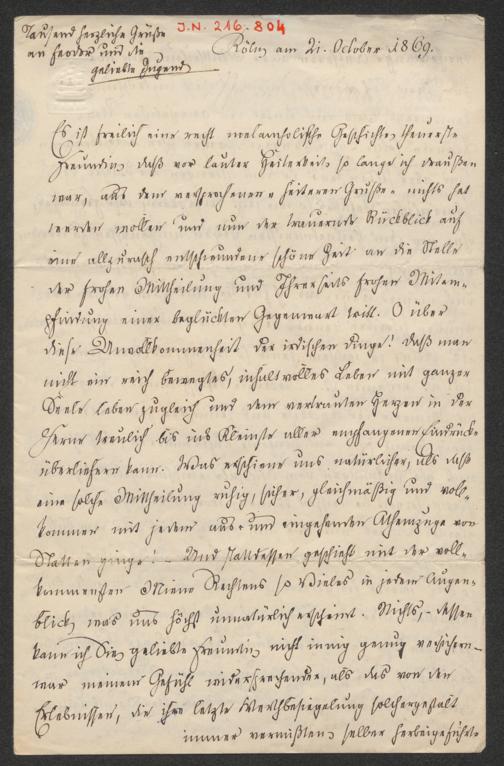 Tausend herzliche Grüße
an Feodor und die
geliebte Jugend
J.N. 216.804
Köln am 21. October 1869.
Es ist freilich eine recht melancholische Geschichte, theuerste
Freundin, daß vor lauter Heiterkeit, so lange ich draußen
war, aus dem versprochenen "heiteren Gruße" nichts hat
werden wollen und nun der trauernde Rückblick auf
eine allzurasch entschwundene schöne Zeit an die Stelle
der frohen Mittheilung und Ihrerseits frohen Mitem-
pfindung einer beglückten Gegenwart tritt. O über
diese Unvollkommenheit der irdischen Dinge! daß man
nicht ein reich bewegtes, inhaltvolles Leben mit ganzer
Seele leben zugleich und dem vertrauten Herzen in der
Ferne treulich bis ins Kleinste aller empfangenen Eindrücke
überliefern kann. Was erschiene uns natürlicher, als daß
eine solche Mittheilung ruhig, sicher, gleichmäßig und voll-
kommen mit jedem aus- und eingehenden Athemzuge von
Statten ginge! – Und stattdessen geschieht mit der voll-
kommensten Miene Rechtens so Vieles in jedem Augen-
blick, was uns höchst unnatürlich erscheint. Nichts, – dessen
kann ich Sie, geliebte Freundin, nicht innig genug versichern –
war meinem Gefühl widersprechender, als das von den
Erlebnissen, die ihre letzte Werthbesiegelung solchergestalt
immer vermißten, selber herbeigeführte